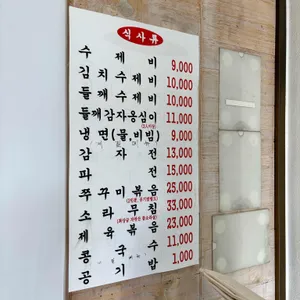 식사류
수제비 9,000
김치수제비 10,000
들깨수제비 10,000
들깨감자옹심이 11,000
(2인이상)
냉면(물,비빔) 9,000
감자전 13,000
파전 15,000
쭈꾸미볶음 25,000
(2인분, 공기밥별도)
소라무침 33,000
제육볶음 23,000
콩국수 11,000
공기밥 1,000